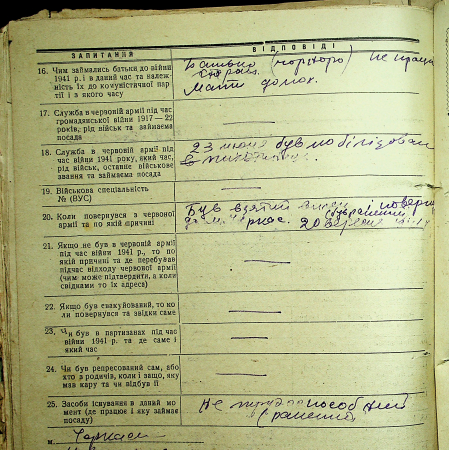 ЗАПИТАННЯ
ВІДПОВІДІ
16. Чим займались батьки до війни
1941 р. і в даний час та належ-
ність їх до комуністичної пар-
тії і з якого часу
Батько не працю
старий.
Мати домог.
17. Служба в червоній армії під час
громадянської війни 1917—22
років, рід військ та займаєма
посада
18. Служба в червоній армії під
час війни 1941 року, який час,
рід військ, останнє військове
звання та займаєма посада
23 июня був мобілізован
19. Військова спеціальність
№ (ВУС)
20. Коли повернувся з червоної
армії та по якій причині
Був взятий
21. Якщо не був в червоній армії
під час війни 1941 р., то по
якій причині та де перебував
підчас відходу червоної армії
(чим може підтвердити, а коли
свідками то їх адреса)
22. Якщо був евакуйований, то ко-
ли повернувся та звідки саме
23. Чи був в партизанах під час
війни 1941 р. та де саме і
який час
24. Чи був репресований сам, або
хто з родичів, коли і защо, яку
мав кару та чи відбув її
25. Засоби існування в даний мо-
мент (де працює і яку займає
посаду)
Не трудоспособний
(ранений)
м. Черкаси